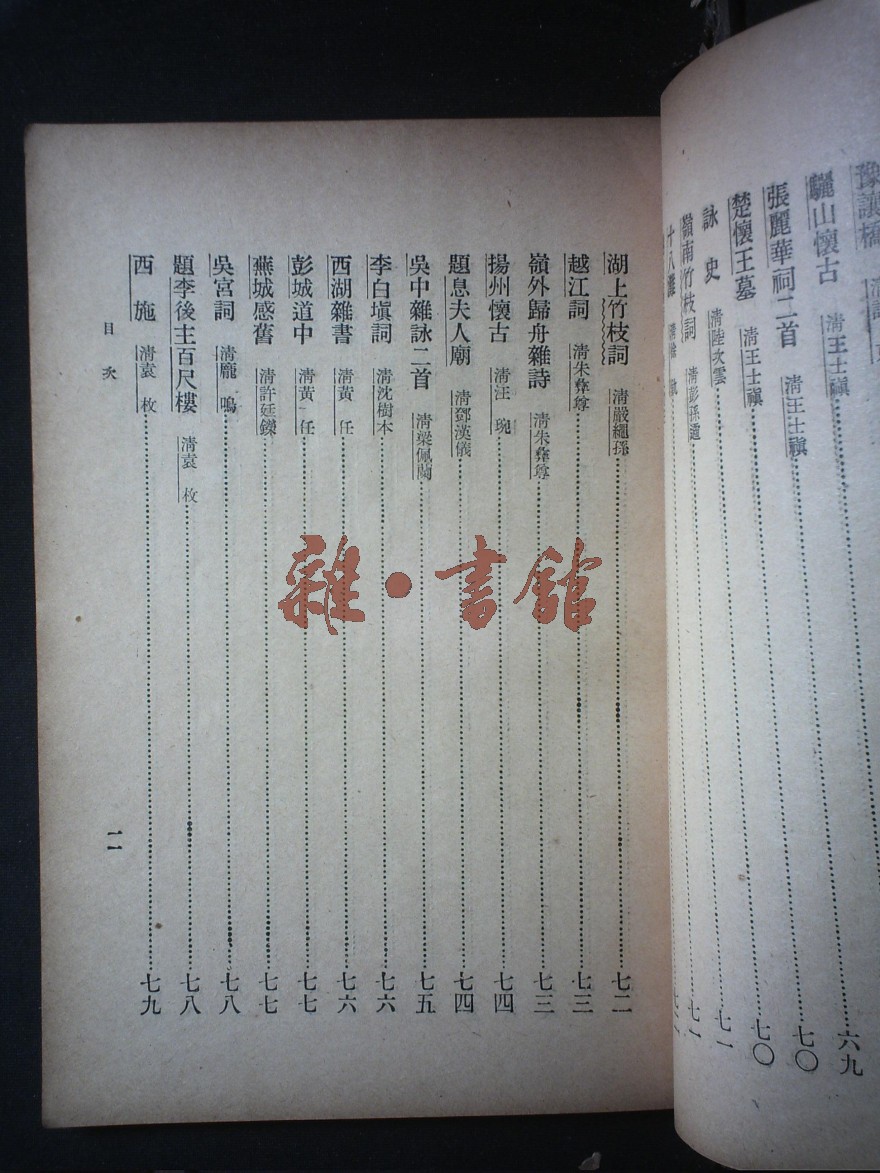 驪山懷古 清王士禛……六九
張麗華祠二首 清王士禛……七〇
楚懷王墓 清王士禛……七〇
詠史 清陸次雲……七一
嶺南竹枝詞 清彭孫遹……七一
湖上竹枝詞 清嚴繩孫……七二
越江詞 清朱彝尊……七三
嶺外歸舟雜詩 清朱彝尊……七三
揚州懷古 清汪琬……七四
題息夫人廟 清鄧漢儀……七四
吳中雜詠二首 清梁佩蘭……七五
李白墳詞 清沈樹本……七六
西湖雜書 清黃任……七六
彭城道中 清黃任……七七
蕪城感舊 清許廷鑅……七七
吳宮詞 清龐鳴……七八
題李後主百尺樓 清袁枚……七八
西施 清袁枚……七九
目次
一一
雜·書館